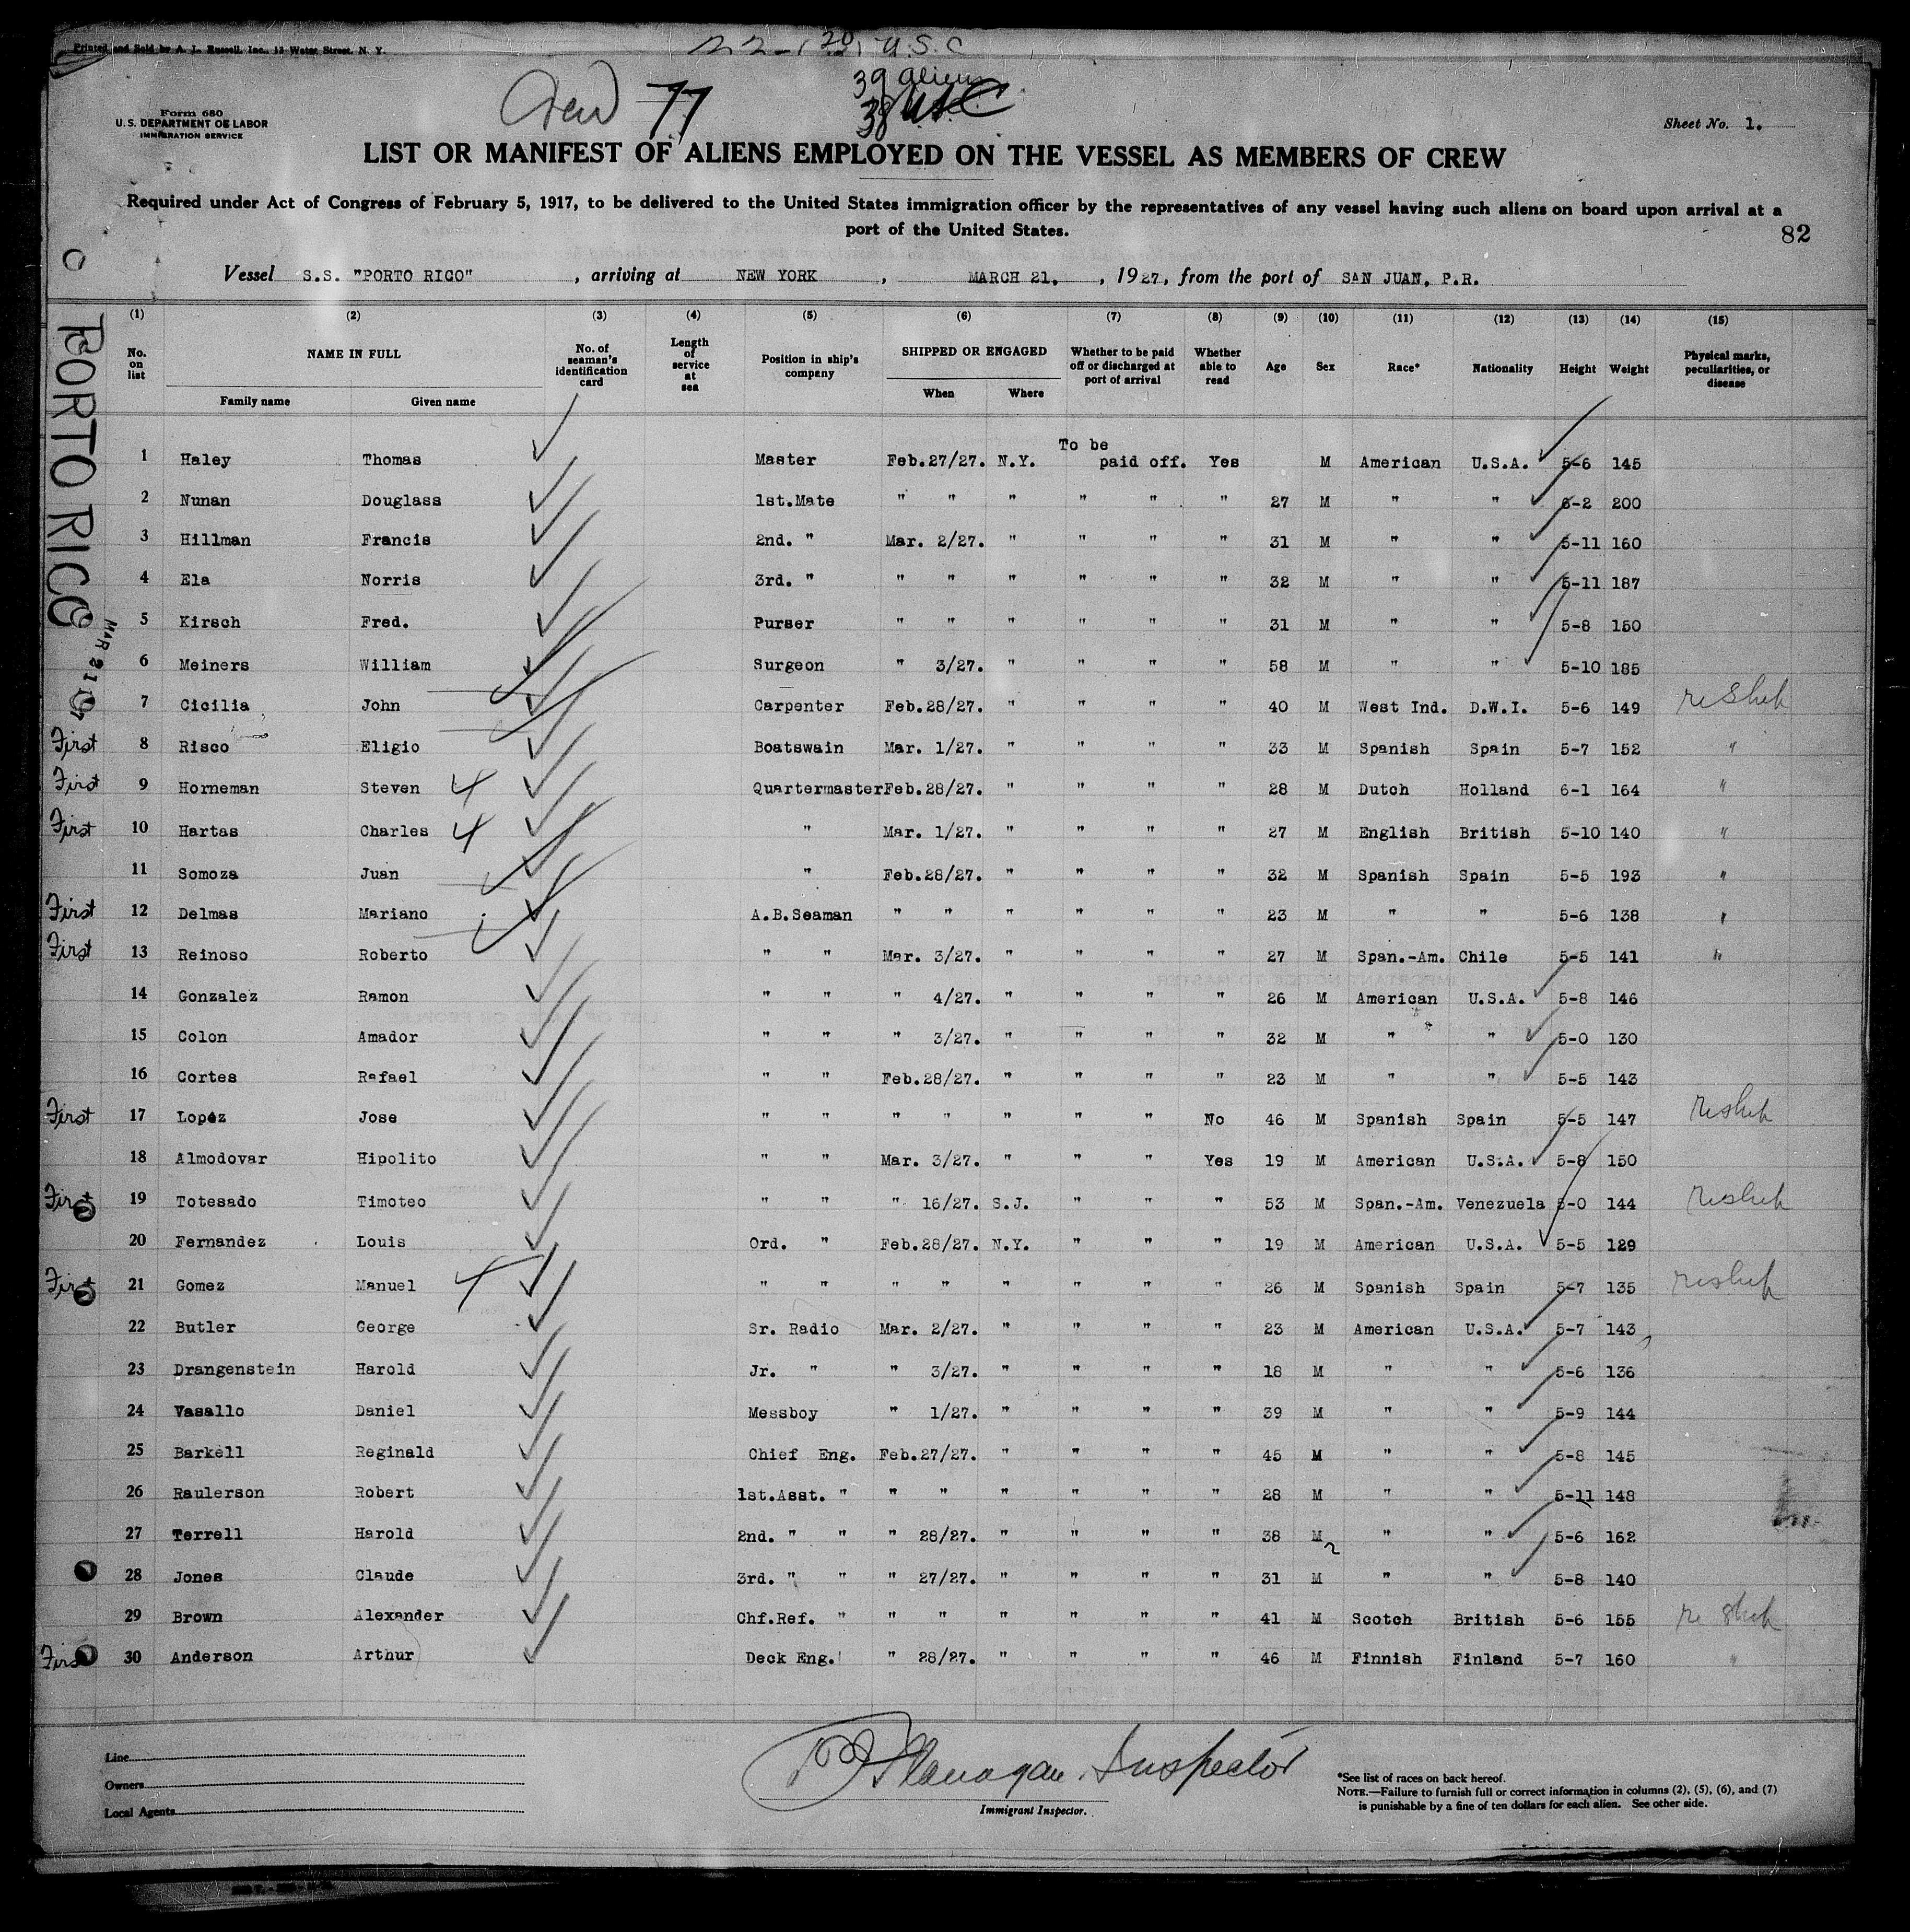 Printed and Sold by A. L. Russell, Inc., 11 Water Street, N. Y.
U.S.C
39 aliens
38
Crew 77
Form 680
U. S. DEPARTMENT OF LABOR
IMMIGRATION SERVICE
Sheet No. 1.
LIST OR MANIFEST OF ALIENS EMPLOYED ON THE VESSEL AS MEMBERS OF CREW
Required under Act of Congress of February 5, 1917, to be delivered to the United States immigration officer by the representatives of any vessel having such aliens on board upon arrival at a
port of the United States.
82
Vessel S.S. "PORTO RICO", arriving at NEW YORK, MARCH 21, 1927, from the port of SAN JUAN, P.R.
PORTO RICO
MAR 21
(1) (2) (3) (4) (5) (6) (7) (8) (9) (10) (11) (12) (13) (14) (15)
No. on list NAME IN FULL Family name Given name No. of seaman's identification card Length of service at sea Position in ship's company SHIPPED OR ENGAGED When Where Whether to be paid off or discharged at port of arrival Whether able to read Age Sex Race* Nationality Height Weight Physical marks, peculiarities, or disease
1 Haley Thomas Master Feb.27/27. N.Y. To be paid off. Yes M American U.S.A. 5-6 145
2 Nunan Douglass 1st.Mate " " " " " " 27 M " " 6-2 200
3 Hillman Francis 2nd. " Mar. 2/27. " " " " 31 M " " 5-11 160
4 Ela Norris 3rd. " " " " " " " 32 M " " 5-11 187
5 Kirsch Fred. Purser " " " " " " 31 M " " 5-8 150
6 Meiners William Surgeon " 3/27. " " " " 58 M " " 5-10 185
7 Cicilia John Carpenter Feb.28/27. " " " " 40 M West Ind. D.W.I. 5-6 149 reship
First 8 Risco Eligio Boatswain Mar. 1/27. " " " " 33 M Spanish Spain 5-7 152 "
First 9 Horneman Steven Quartermaster Feb.28/27. " " " " 28 M Dutch Holland 6-1 164 "
First 10 Hartas Charles " Mar. 1/27. " " " " 27 M English British 5-10 140 "
11 Somoza Juan " Feb.28/27. " " " " 32 M Spanish Spain 5-5 193 "
First 12 Delmas Mariano A.B.Seaman " " " " " " 23 M " " 5-6 138 "
First 13 Reinoso Roberto " " Mar. 3/27. " " " " 27 M Span.-Am. Chile 5-5 141 "
14 Gonzalez Ramon " " " 4/27. " " " " 26 M American U.S.A. 5-8 146
15 Colon Amador " " " 3/27. " " " " 32 M " " 5-0 130
16 Cortes Rafael " " Feb.28/27. " " " " 23 M " " 5-5 143
First 17 Lopez Jose " " " " " " " No 46 M Spanish Spain 5-5 147 reship
18 Almodovar Hipolito " " Mar. 3/27. " " " Yes 19 M American U.S.A. 5-8 150
First 19 Totesado Timoteo " " " 16/27. S.J. " " " 53 M Span.-Am. Venezuela 5-0 144 reship
20 Fernandez Louis Ord. " Feb.28/27. N.Y. " " " 19 M American U.S.A. 5-5 129
First 21 Gomez Manuel " " " " " " " " 26 M Spanish Spain 5-7 135 reship
22 Butler George Sr. Radio Mar. 2/27. " " " " 23 M American U.S.A. 5-7 143
23 Drangenstein Harold Jr. " " 3/27. " " " " 18 M " " 5-6 136
24 Vasallo Daniel Messboy " 1/27. " " " " 39 M " " 5-9 144
25 Barkell Reginald Chief Eng. Feb.27/27. " " " " 45 M " " 5-8 145
26 Raulerson Robert 1st.Asst. " " " " " " " 28 M " " 5-11 148
27 Terrell Harold 2nd. " " " 28/27. " " " " 38 M " " 5-6 162
28 Jones Claude 3rd. " " " 27/27. " " " " 31 M " " 5-8 140
29 Brown Alexander Chf.Ref. " " " " " " " 41 M Scotch British 5-6 155 reship
First 30 Anderson Arthur Deck Eng. " 28/27. " " " " 46 M Finnish Finland 5-7 160 "
Line
Owners
Local Agents
Flanagan Inspector
Immigrant Inspector.
*See list of races on back hereof.
NOTE.—Failure to furnish full or correct information in columns (2), (5), (6), and (7)
is punishable by a fine of ten dollars for each alien. See other side.